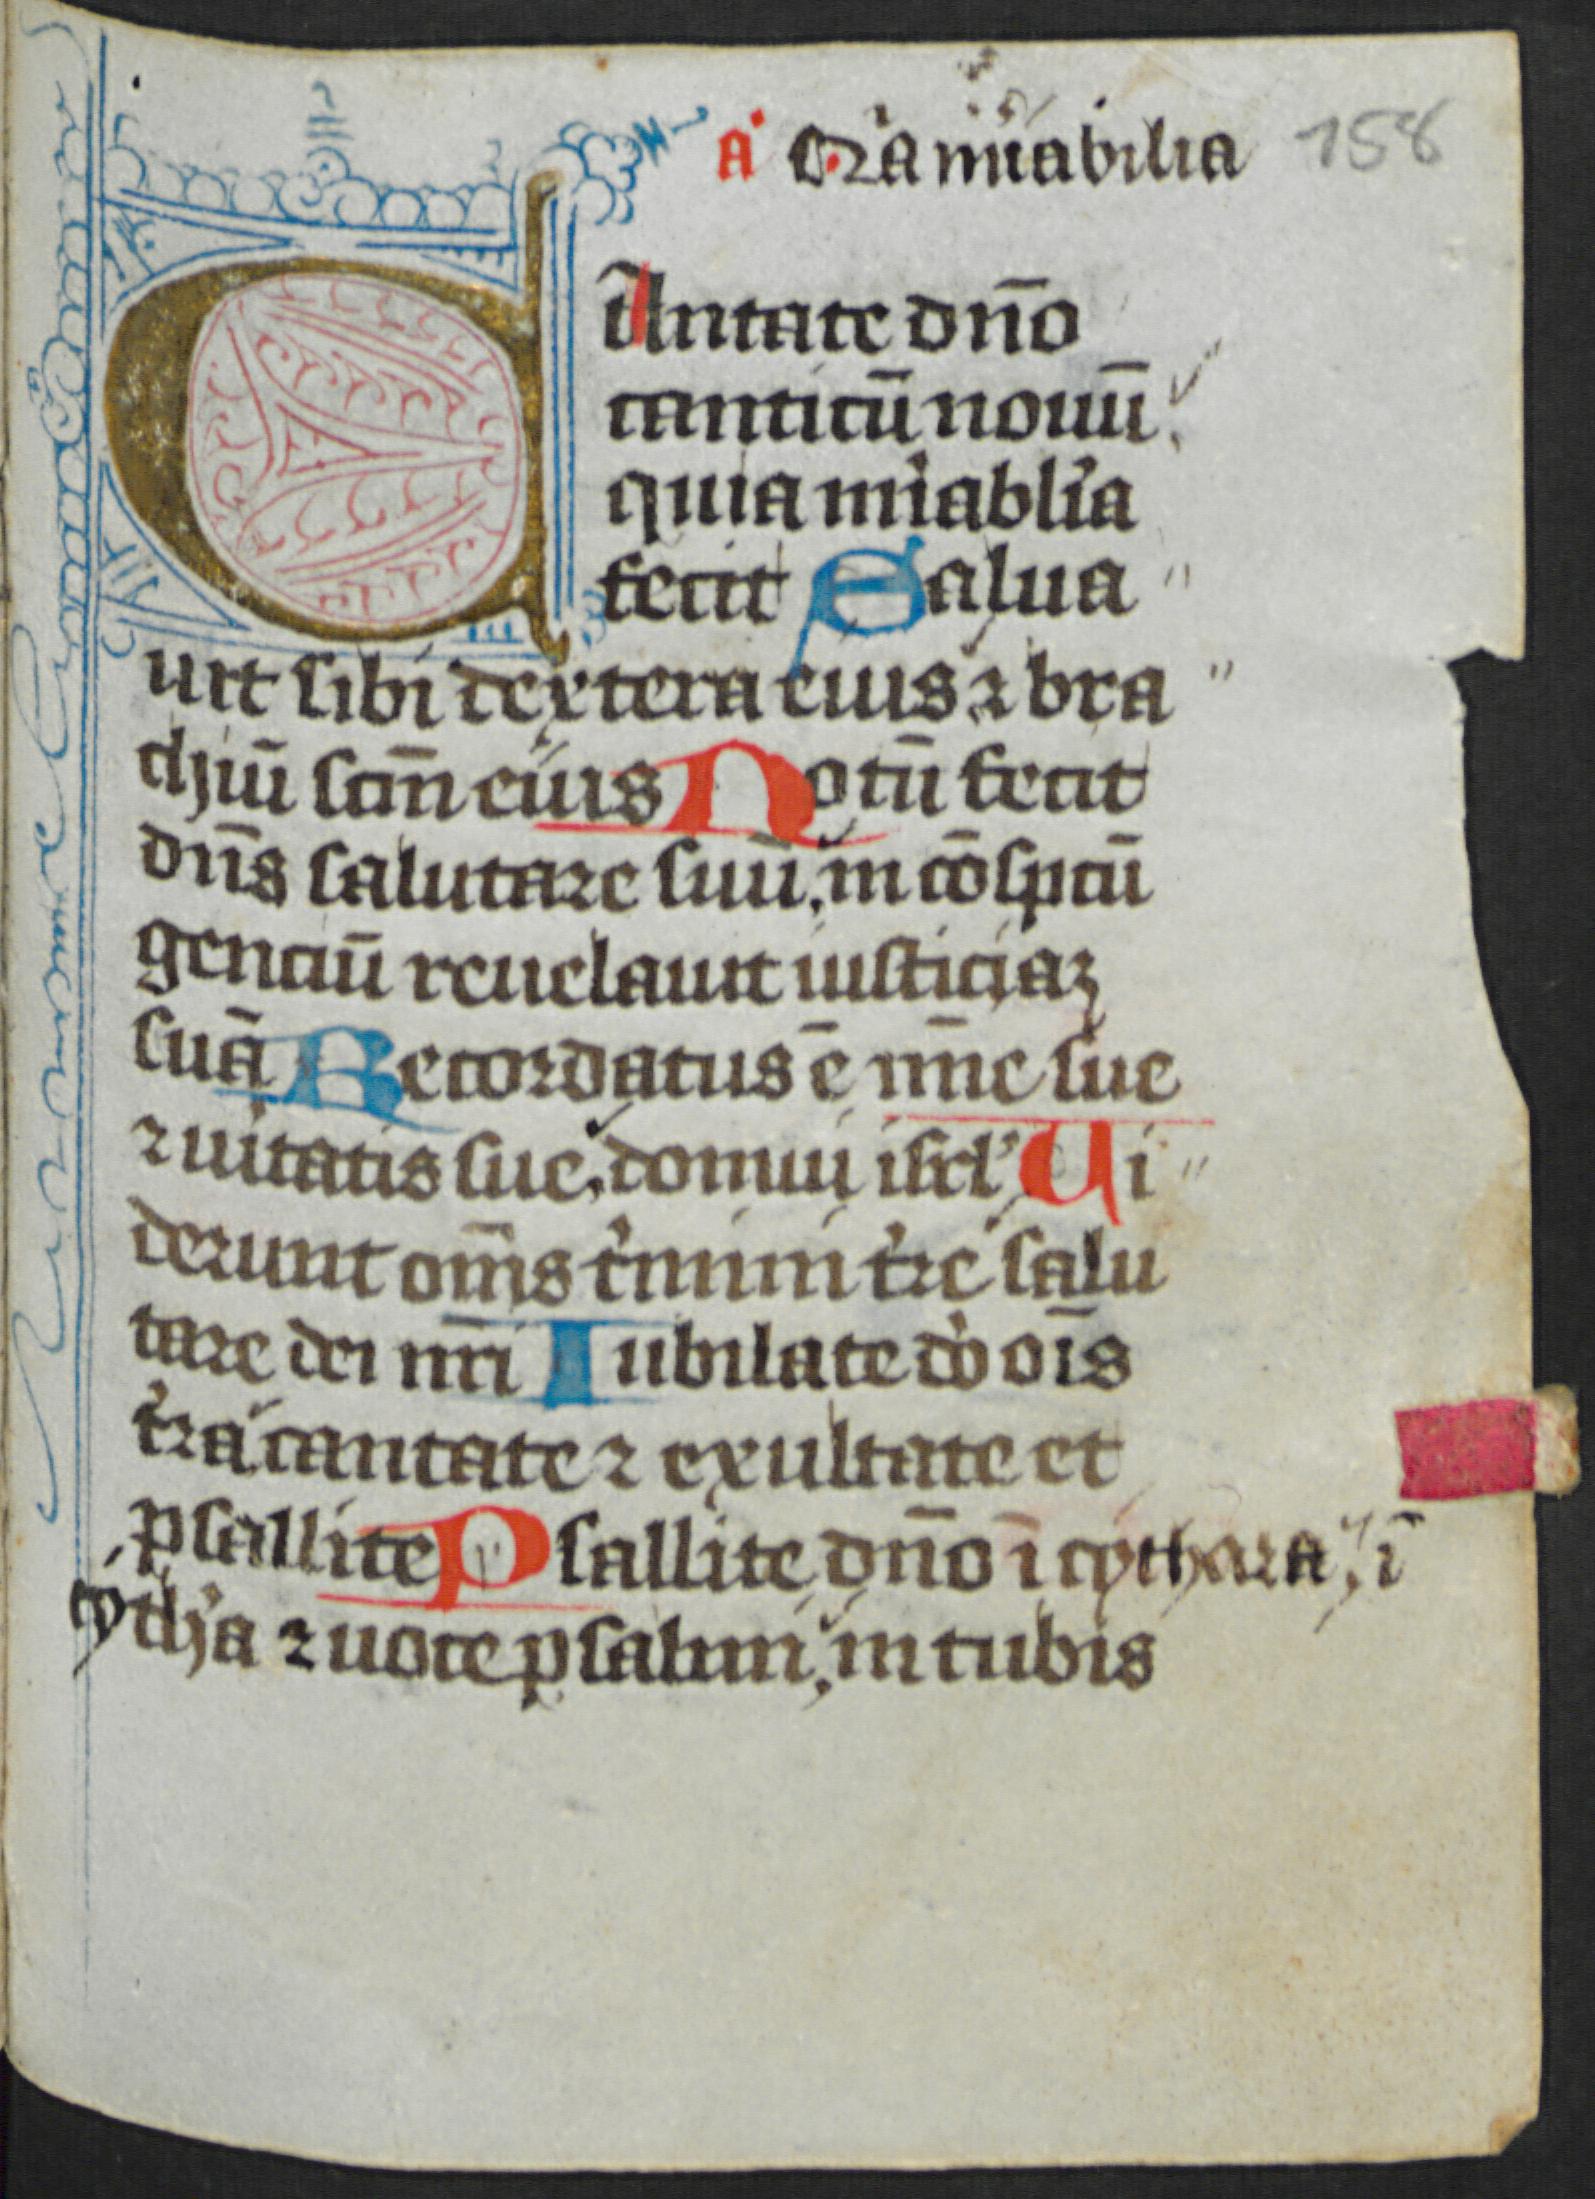 a̾ Q̾ra mi̾rabilia 158
CAntate dn̄o
canticū nouū
quia mi̾abl̾ia
fecit Salua
uit sibi dextera eius ⁊ bra
chiū scm̄ eius Notū fecit
dn̄s salutare suū, in cōsp̄tū
genciū reuelauit iusticiaꝫ
suā Recordatus ē mīe sue
⁊ uitatis sue, domui isrl' Ui
derunt om̄s t̾mini t̾re salu
tare dei nr̄i Iubilate do̾ oīs
t̾ra cantate ⁊ exultate et
psallite Psallite dn̄o ī cythara, ī
cyth̾a ⁊ uoce psalmi, in tubis